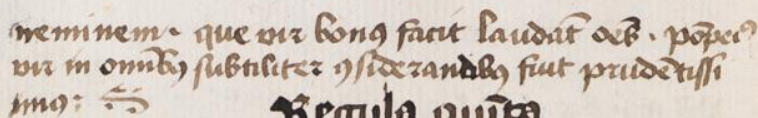 neminem · que vir bonꝰ facit laudāt oēs · pōpeiꝰ
vir in omnibꝰ subtiliter ꝯsiderandibꝰ fuit prudētissi
mꝰ:
Regula quīta